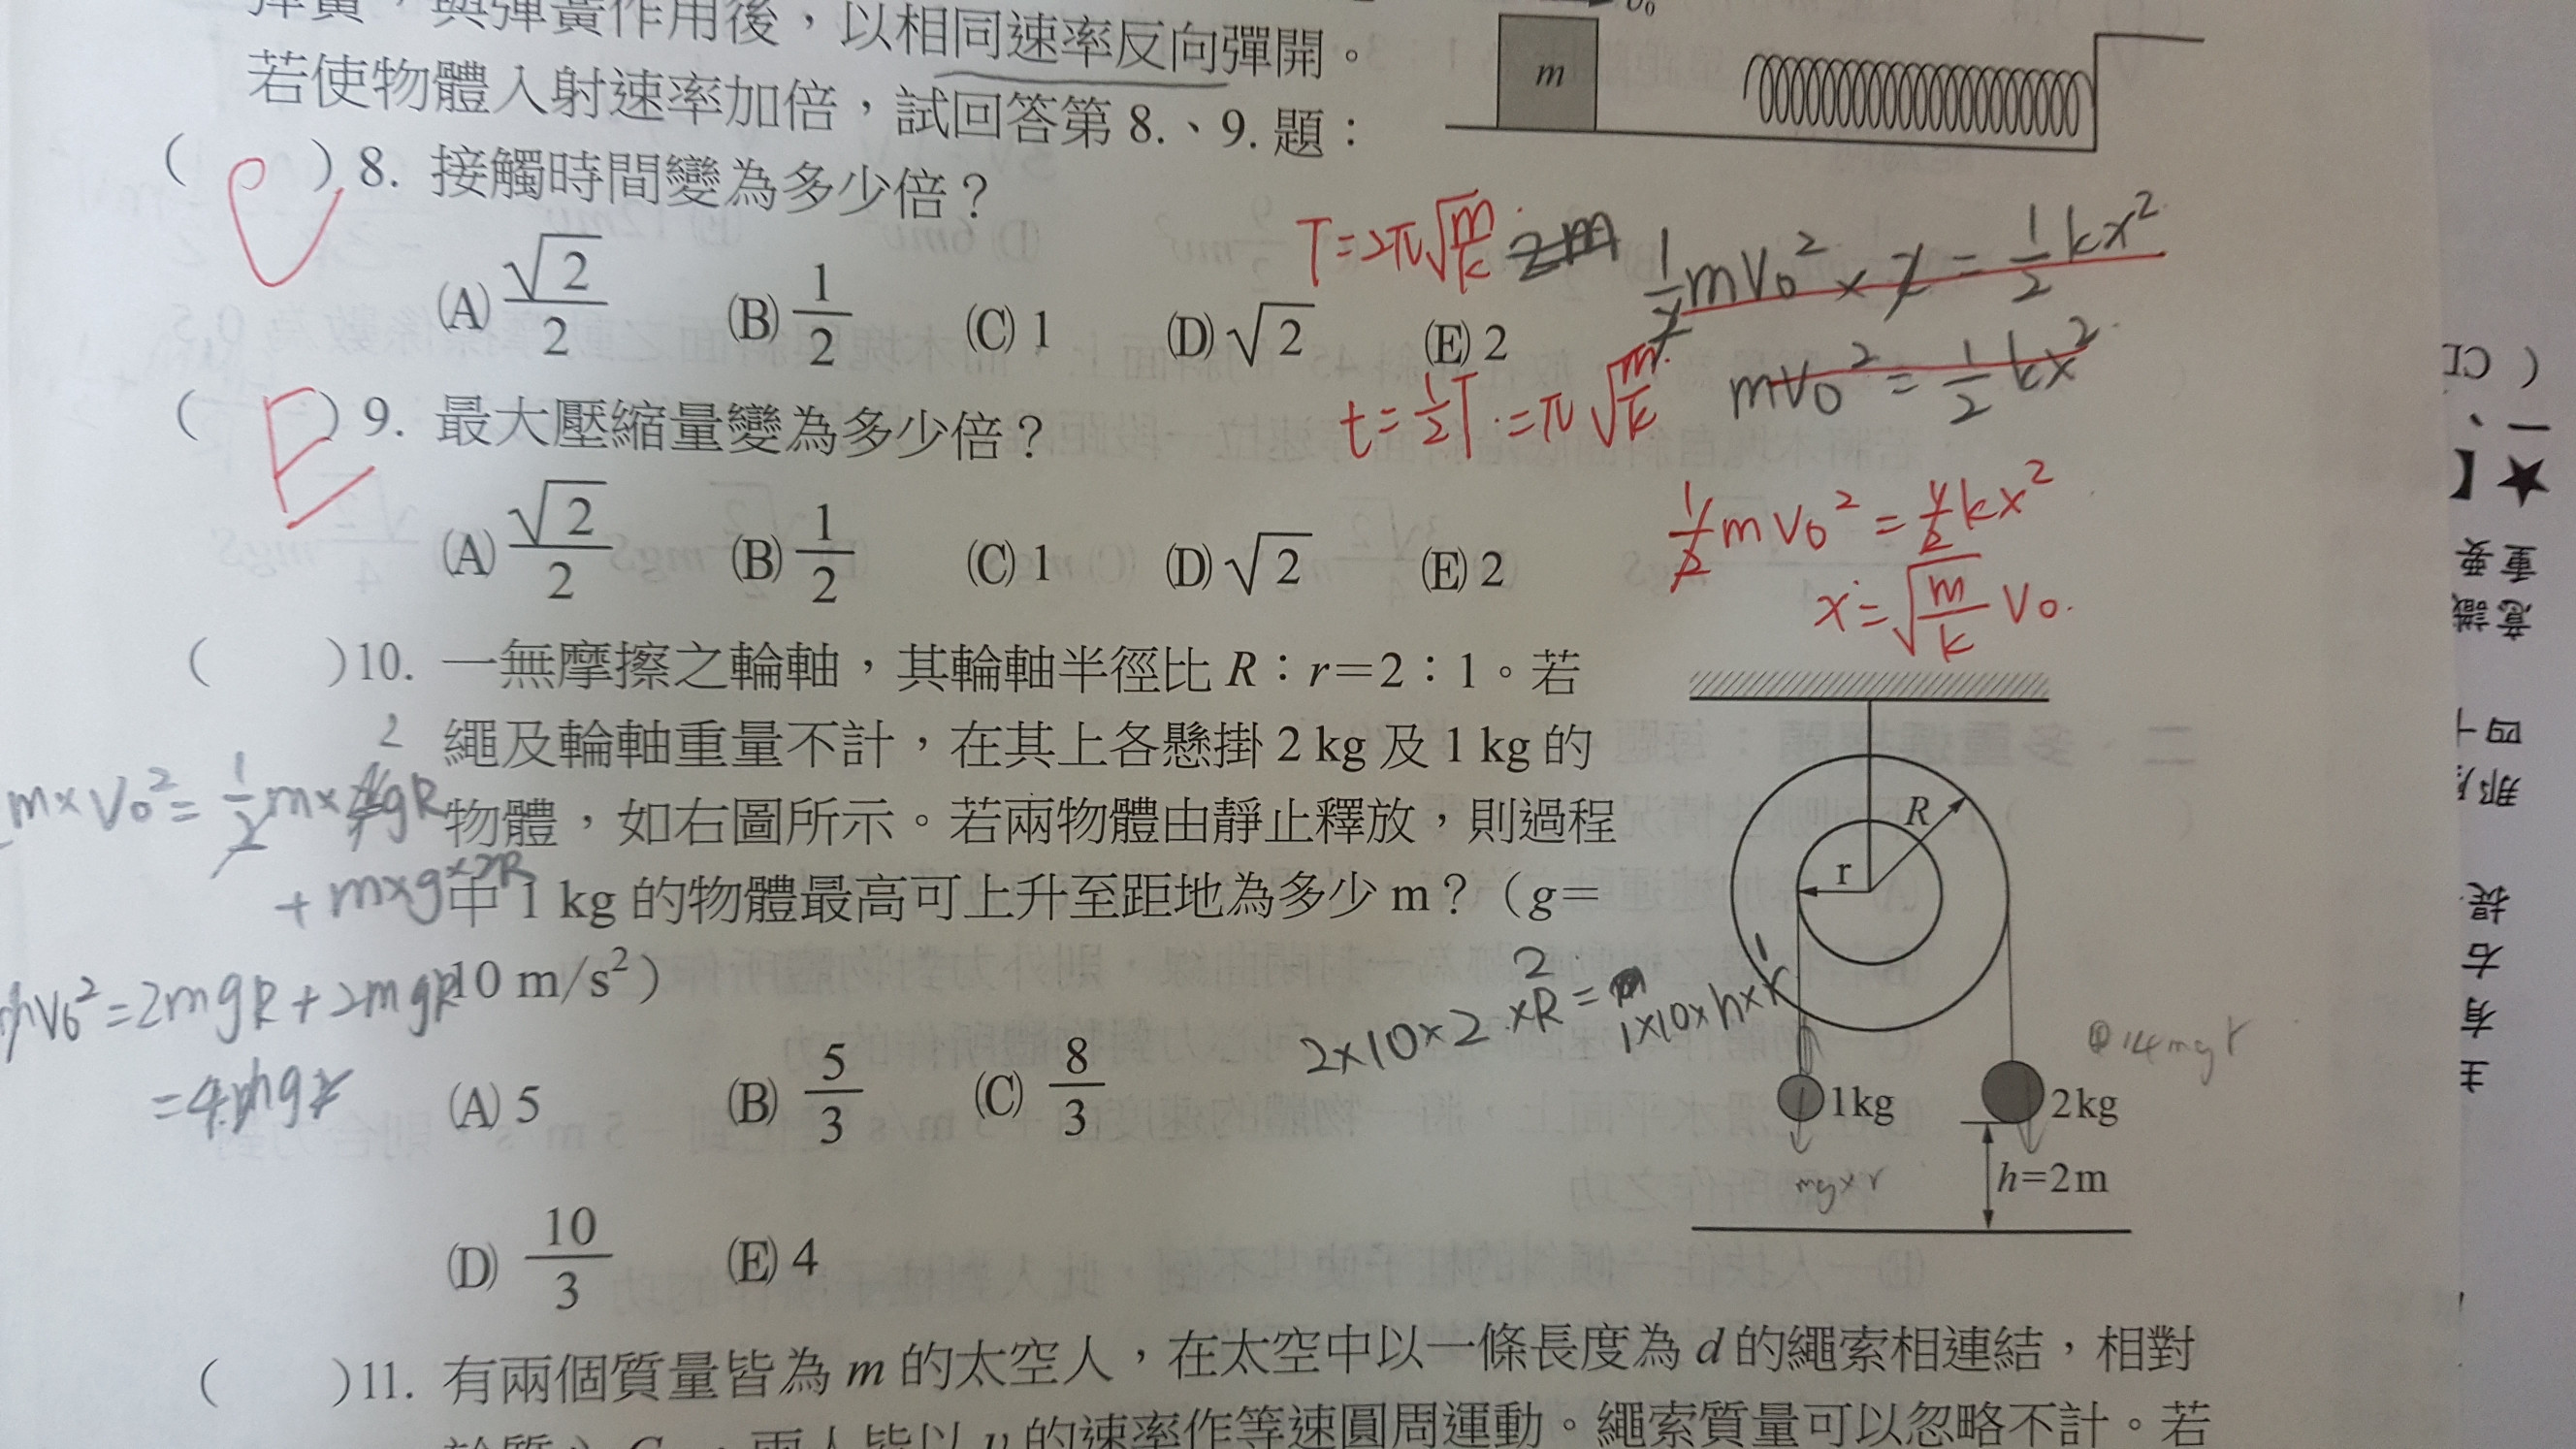 彈簧，與彈簧作用後，以相同速率反向彈開。
若使物體入射速率加倍，試回答第 8.、9. 題：
v₀
m
( C ) 8. 接觸時間變為多少倍？
(A) √2/2 (B) 1/2 (C) 1 (D) √2 (E) 2
T=2π√(m/k)
t=1/2T=π√(m/k)
1/2mv₀²×2=1/2kx²
mv₀²=1/2kx²
( E ) 9. 最大壓縮量變為多少倍？
(A) √2/2 (B) 1/2 (C) 1 (D) √2 (E) 2
1/2mv₀²=1/2kx²
x=√(m/k)v₀
( ) 10. 一無摩擦之輪軸，其輪軸半徑比 R：r＝2：1。若
繩及輪軸重量不計，在其上各懸掛 2 kg 及 1 kg 的
物體，如右圖所示。若兩物體由靜止釋放，則過程
中 1 kg 的物體最高可上升至距地為多少 m？（g＝
10 m/s²）
m×v₀²=1/2m×gR
+m×g×2R
v₀²=2mgR+2mgR
=4mg
2×10×2×R=
1×10×h×r
(A) 5 (B) 5/3 (C) 8/3
(D) 10/3 (E) 4
R
r
1kg
2kg
h=2m
mg×r
( ) 11. 有兩個質量皆為 m 的太空人，在太空中以一條長度為 d 的繩索相連結，相對
於質心 C，兩人皆以 v 的速率作等速圓周運動。繩索質量可以忽略不計。若
一、
★【
重要
意識
四
那
提
右
有
主